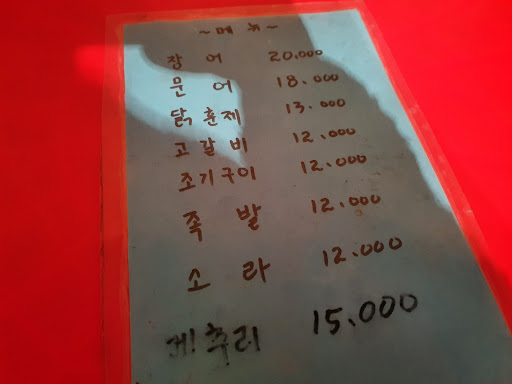 ~메뉴~
장어 20,000
문어 18.000
닭훈제 13.000
고갈비 12.000
조기구이 12.000
족발 12.000
소라 12.000
메추리 15.000